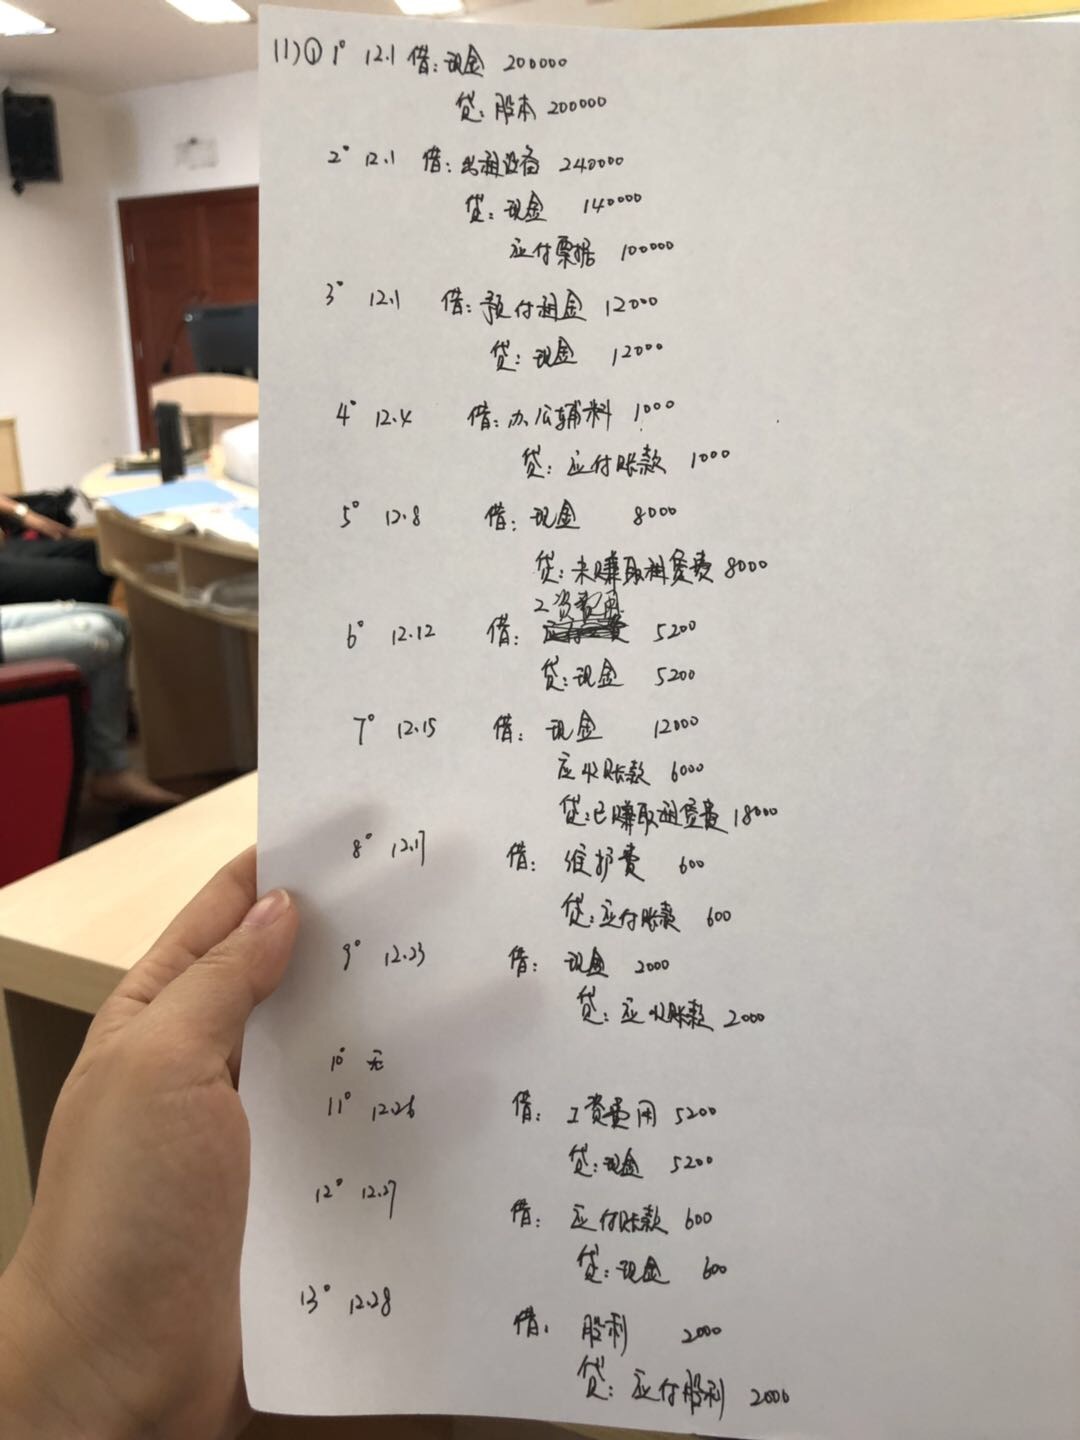 (1)① 1° 12.1 借:现金 200000
贷:股本 200000
2° 12.1 借:出租设备 240000
贷:现金 140000
应付票据 100000
3° 12.1 借:预付租金 12000
贷:现金 12000
4° 12.4 借:办公辅料 1000
贷:应付账款 1000
5° 12.8 借:现金 8000
贷:未赚取租赁费 8000
工资费用
6° 12.12 借: 5200
贷:现金 5200
7° 12.15 借:现金 12000
应收账款 6000
贷:已赚取租赁费 18000
8° 12.17 借:维护费 600
贷:应付账款 600
9° 12.23 借:现金 2000
贷:应收账款 2000
10° 无
11° 12.26 借:工资费用 5200
贷:现金 5200
12° 12.27 借:应付账款 600
贷:现金 600
13° 12.28 借:股利 2000
贷:应付股利 2000